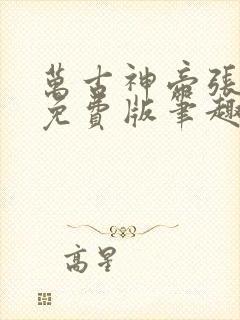 萬古神帝張
免費版筆趣
高星